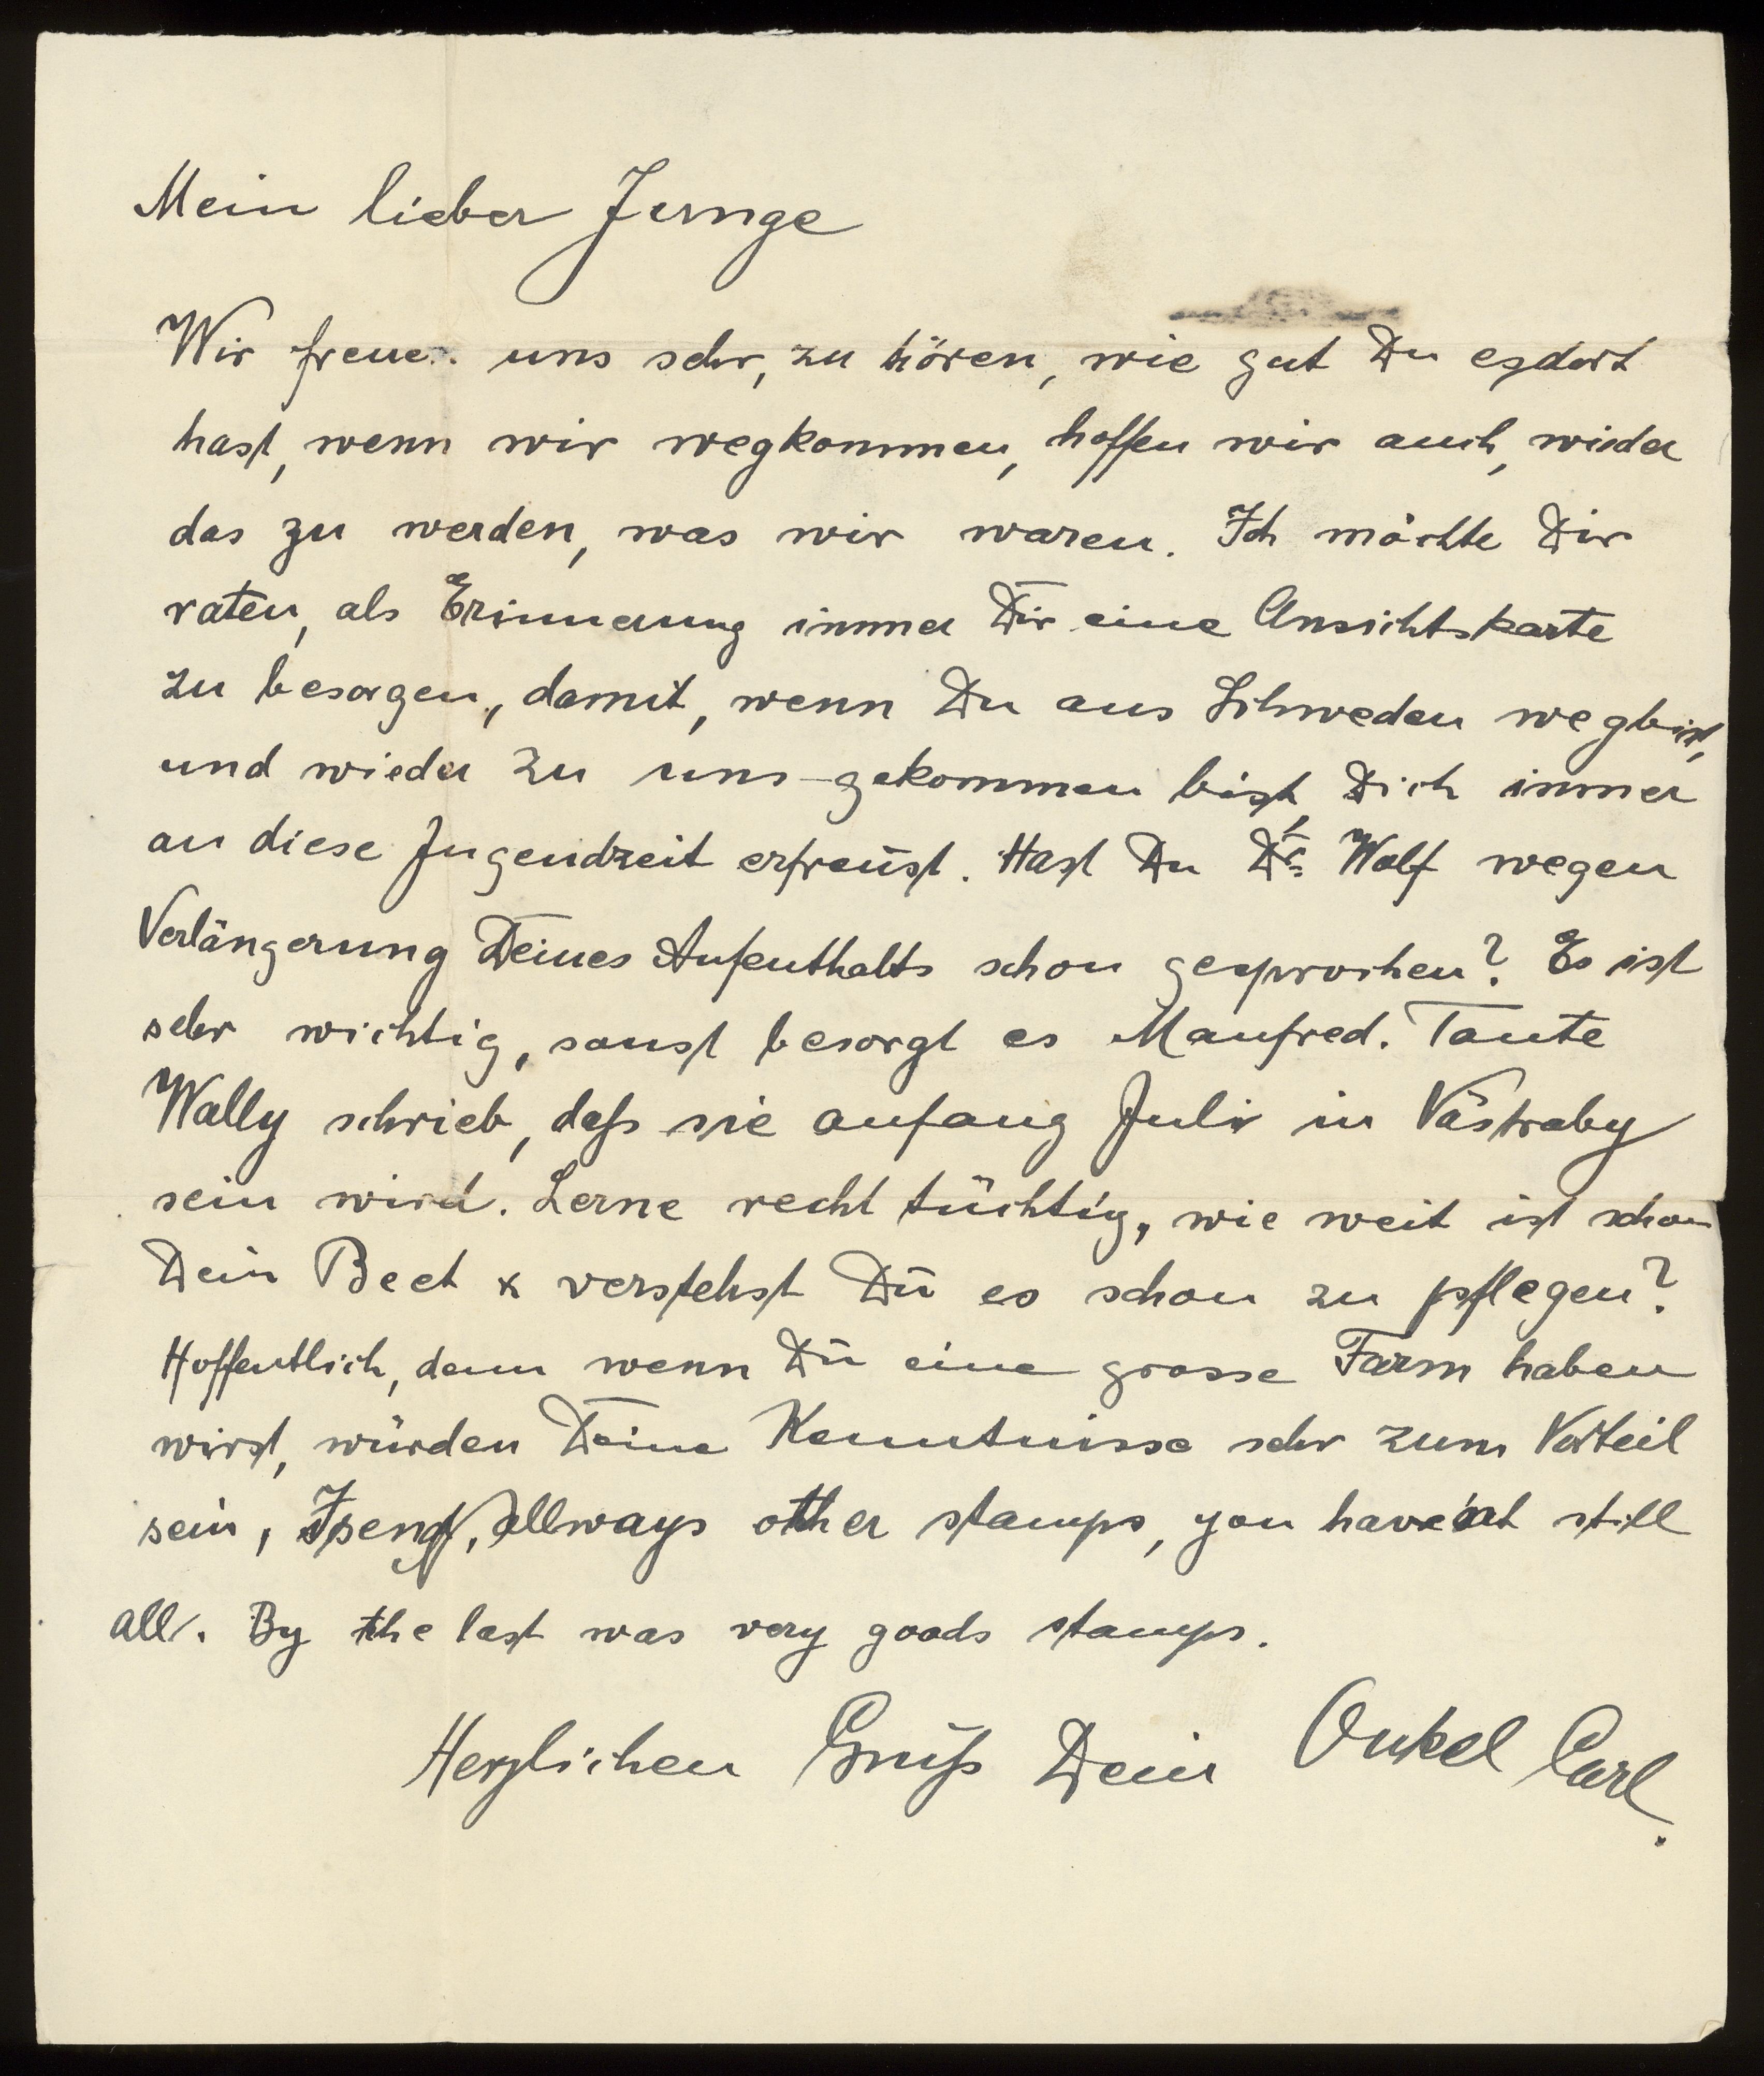 Mein lieber Junge
Wir freuen uns sehr, zu hören, wie gut Du es dort
hast, wenn wir wegkommen, hoffen wir auch, wieder
das zu werden, was wir waren. Ich möchte Dir
raten, als Erinnerung immer Dir eine Ansichtskarte
zu besorgen, damit, wenn Du aus Schweden wegbist,
und wieder zu uns gekommen bist, Dich immer
an diese Jugendzeit erfreust. Hast Du Dr. Wolf wegen
Verlängerung Deines Aufenthalts schon gesprochen? Es ist
sehr wichtig, sonst besorgt es Manfred. Tante
Wally schrieb, daß sie anfang Juli in Västraby
sein wird. Lerne recht tüchtig, wie weit ist schon
Dein Beet & verstehst Du es schon zu pflegen?
Hoffentlich, denn wenn Du eine grosse Farm haben
wirst, würden Deine Kenntnisse sehr zum Vorteil
sein, I send, allways other stamps, you have'nt still
all. By the last was very goods stamps.
Herzlichen Gruß Dein Onkel Carl.